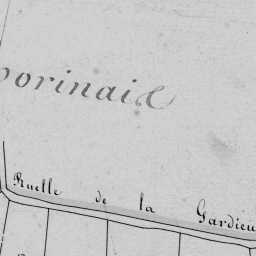 orinais
Ruelle de la Gardieu